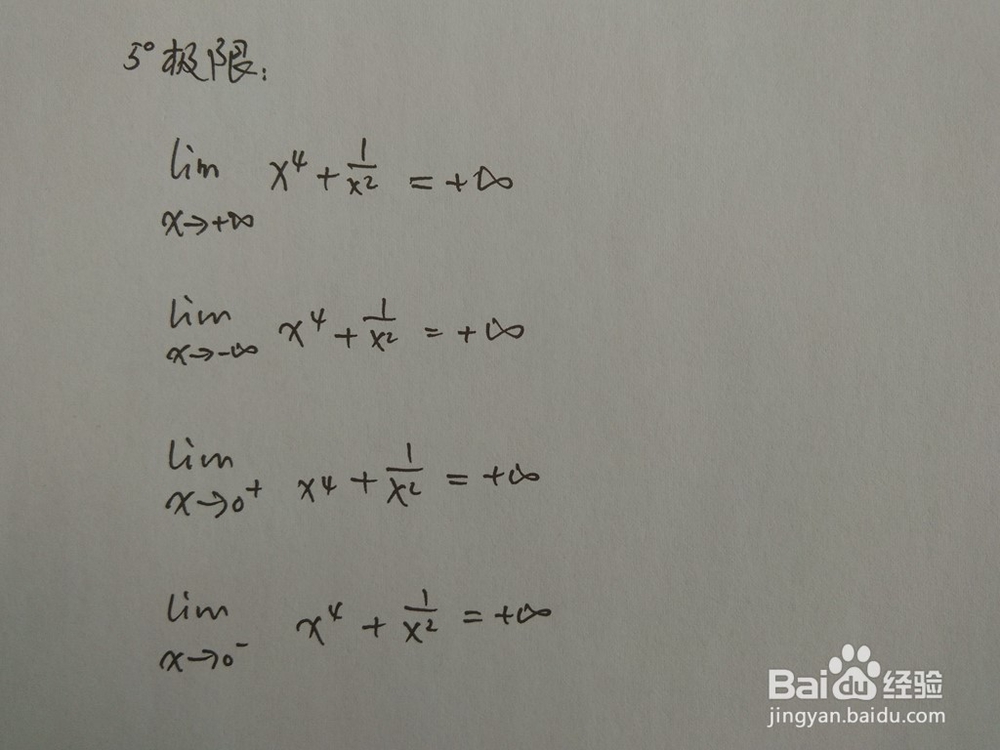 5° 极限:
lim x⁴ + 1/x² = +∞
x→+∞
lim x⁴ + 1/x² = +∞
x→-∞
lim x⁴ + 1/x² = +∞
x→0⁺
lim x⁴ + 1/x² = +∞
x→0⁻
Baidu经验
jingyan.baidu.com